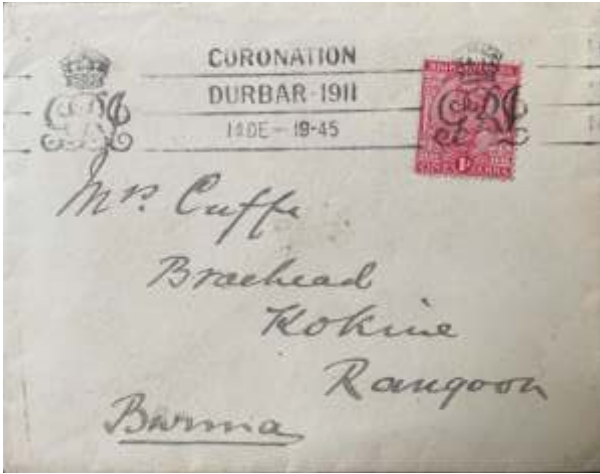 CORONATION
DURBAR-1911
DE-19-45
ONE ANNA
Mrs. Cuffe
Braehead
Kokine
Rangoon
Burma